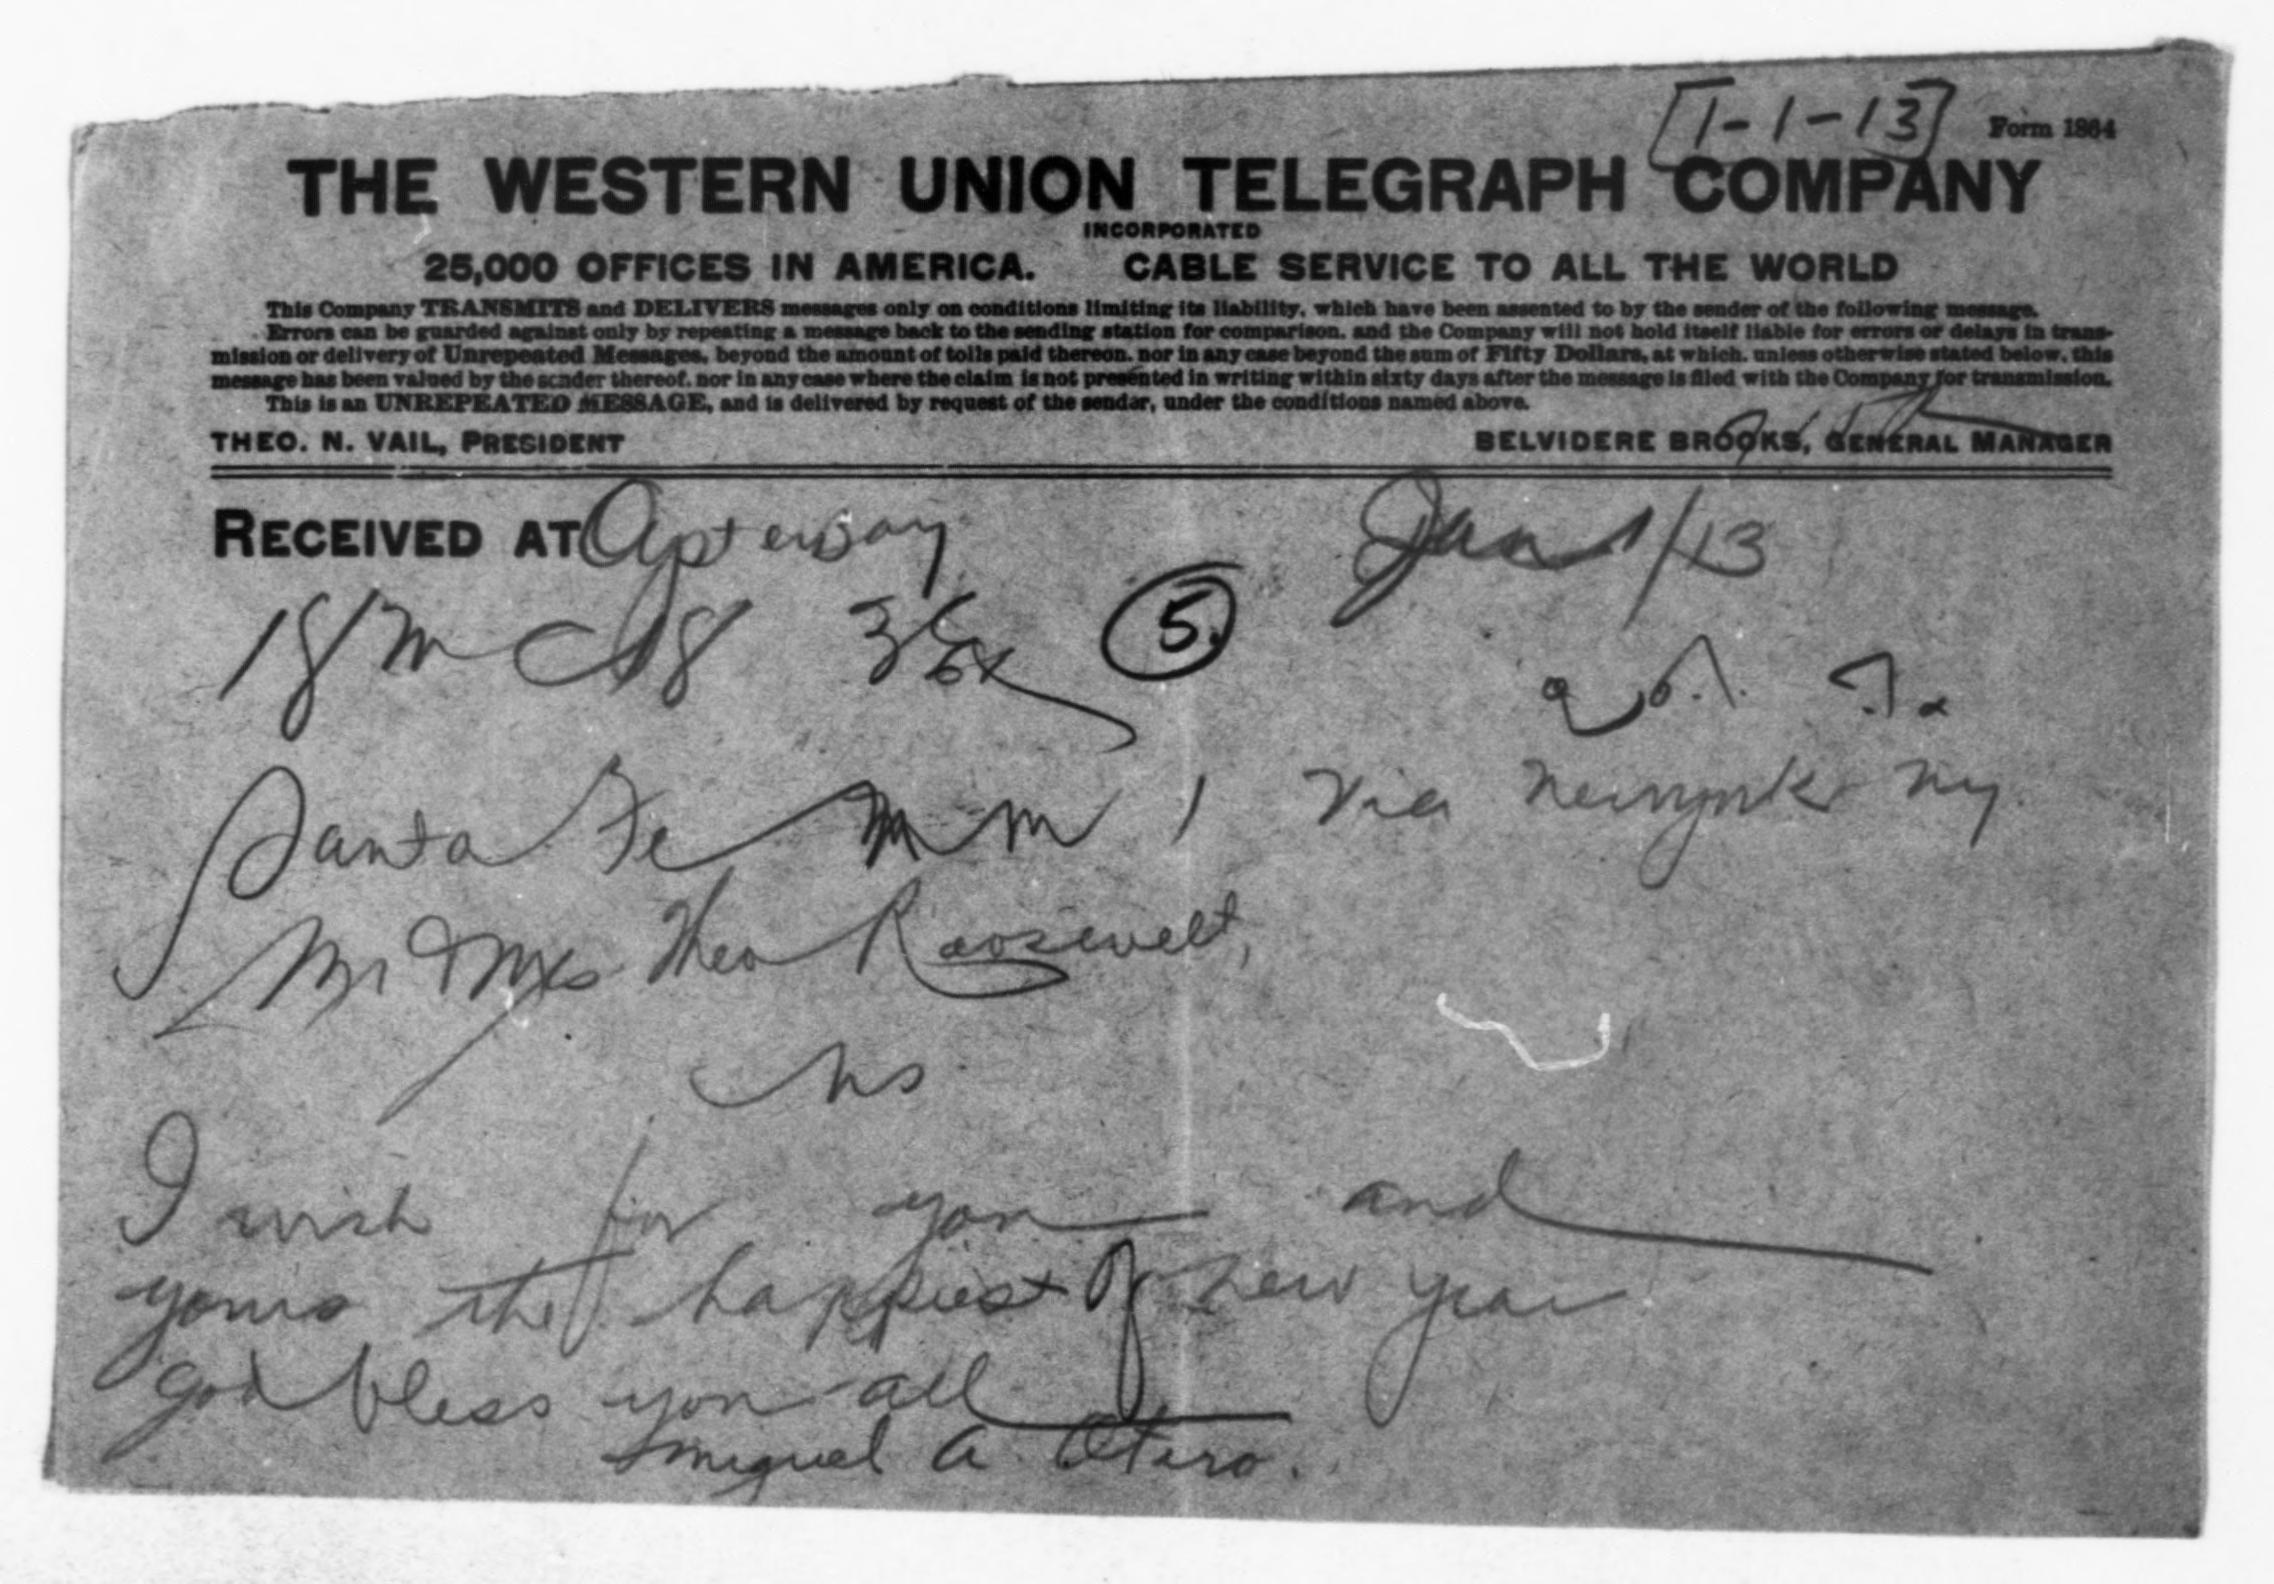 [1-1-13]
Form 1864
THE WESTERN UNION TELEGRAPH COMPANY
INCORPORATED
25,000 OFFICES IN AMERICA. CABLE SERVICE TO ALL THE WORLD
This Company TRANSMITS and DELIVERS messages only on conditions limiting its liability, which have been assented to by the sender of the following message.
Errors can be guarded against only by repeating a message back to the sending station for comparison, and the Company will not hold itself liable for errors or delays in trans-
mission or delivery of Unrepeated Messages, beyond the amount of tolls paid thereon, nor in any case beyond the sum of Fifty Dollars, at which, unless otherwise stated below, this
message has been valued by the sender thereof, nor in any case where the claim is not presented in writing within sixty days after the message is filed with the Company for transmission.
This is an UNREPEATED MESSAGE, and is delivered by request of the sender, under the conditions named above.
THEO. N. VAIL, PRESIDENT BELVIDERE BROOKS, GENERAL MANAGER
RECEIVED AT Oysterbay Jan 1/13
18 5
Santa Fe 1 Via Newyork Ny
Mr & Mrs Theo Roosevelt,
I wish for you and
yours the happiest of new year
God bless you all
Miguel A. Otero.